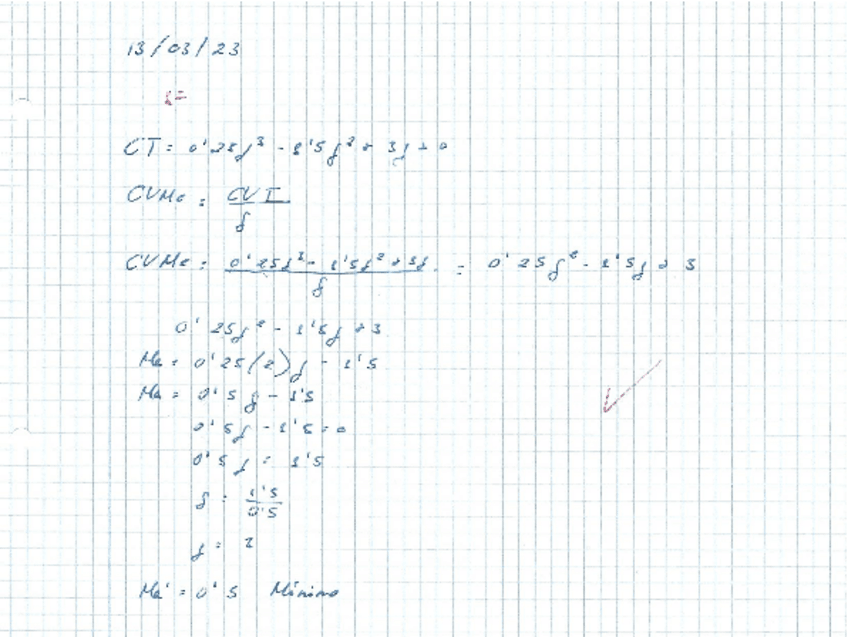 13/03/23
CT = 0'25q³ - 1'5q² + 3q + 0
CVMe = CVT / q
CVMe = 0'25q³ - 1'5q² + 3q / q = 0'25q² - 1'5q + 3
0'25q² - 1'5q + 3
Ma = 0'25(2)q - 1'5
Ma = 0'5q - 1'5
0'5q - 1'5 = 0
0'5q = 1'5
q = 1'5 / 0'5
q =
Ma' = 0'5 Mínimo